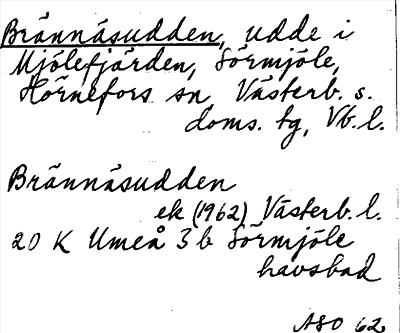 Brännäsudden, udde i
Mjölefjärden, Sörmjöle,
Hörnefors sn, Västerb. s.
doms. tg, Vb. l.
Brännäsudden
ek (1962) Västerb. l.
20 K Umeå 3 b Sörmjöle
havsbad
ASO 62